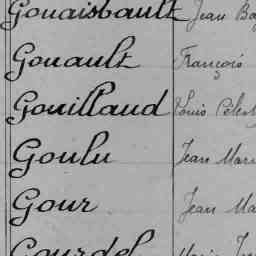 Gouaisbault Jean Ba
Gouault François
Gouillaud Louis Célest
Goulu Jean Mari
Gour Jean Ma
Gourdel Marie